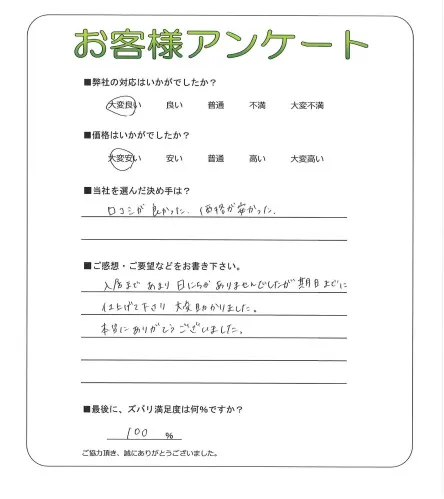 お客様アンケート
■弊社の対応はいかがでしたか？
大変良い 良い 普通 不満 大変不満
■価格はいかがでしたか？
大変安い 安い 普通 高い 大変高い
■当社を選んだ決め手は？
口コミが良かった. 価格が安かった.
■ご感想・ご要望などをお書き下さい。
入居まで あまり 日にちが ありませんでしたが 期日までに
仕上げて下さり 大変助かりました。
本当にありがとうございました。
■最後に、ズバリ満足度は何％ですか？
100 ％
ご協力頂き、誠にありがとうございました。